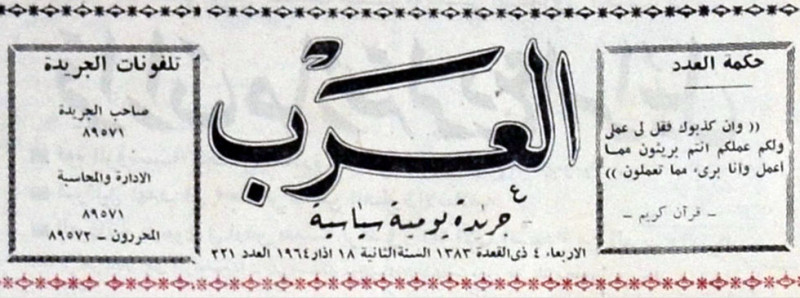 حكمة العدد
(( وان كذبوك فقل لى عملى
ولكم عملكم انتم بريئون مما
اعمل وانا برىء مما تعملون ))
- قرآن كريم -
العرب
جريدة يومية سياسية
الاربعاء ٤ ذى القعدة ١٣٨٣ السنة الثانية ١٨ اذار ١٩٦٤ العدد ٢٢١
تلفونات الجريدة
صاحب الجريدة
٨٩٥٧١
الادارة والمحاسبة
٨٩٥٧١
المحررون - ٨٩٥٧٢